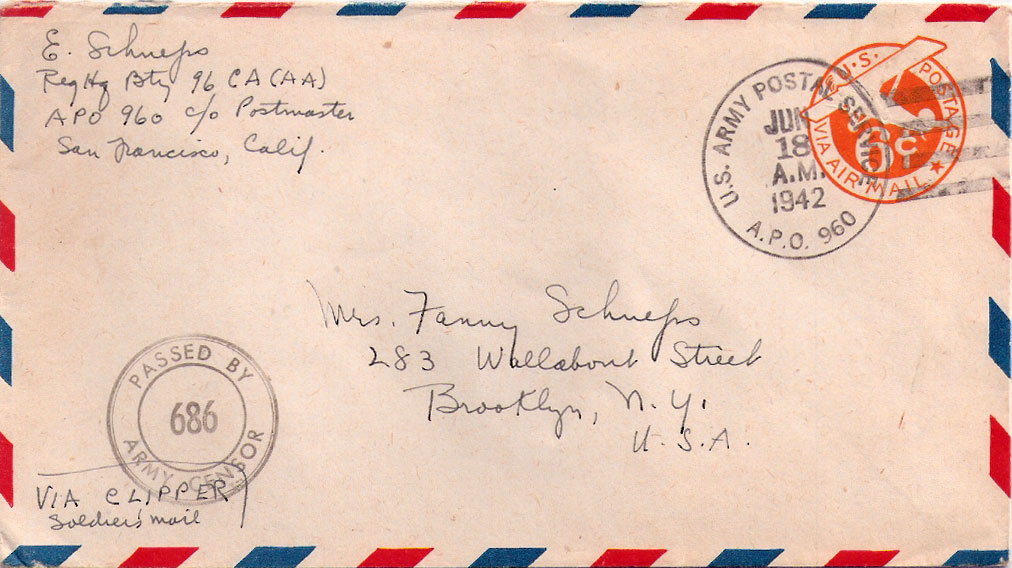 E. Schneps
Reg Hq Btry 96 CA (AA)
APO 960 c/o Postmaster
San Francisco, Calif.
U.S. ARMY POSTAL SERVICE
JUN
18
A.M.
1942
A.P.O. 960
U.S. POSTAGE
6c
VIA AIR MAIL
Mrs. Fanny Schneps
283 Wallabout Street
Brooklyn, N.Y.
U.S.A.
PASSED BY
686
ARMY CENSOR
VIA CLIPPER
Soldiers' mail